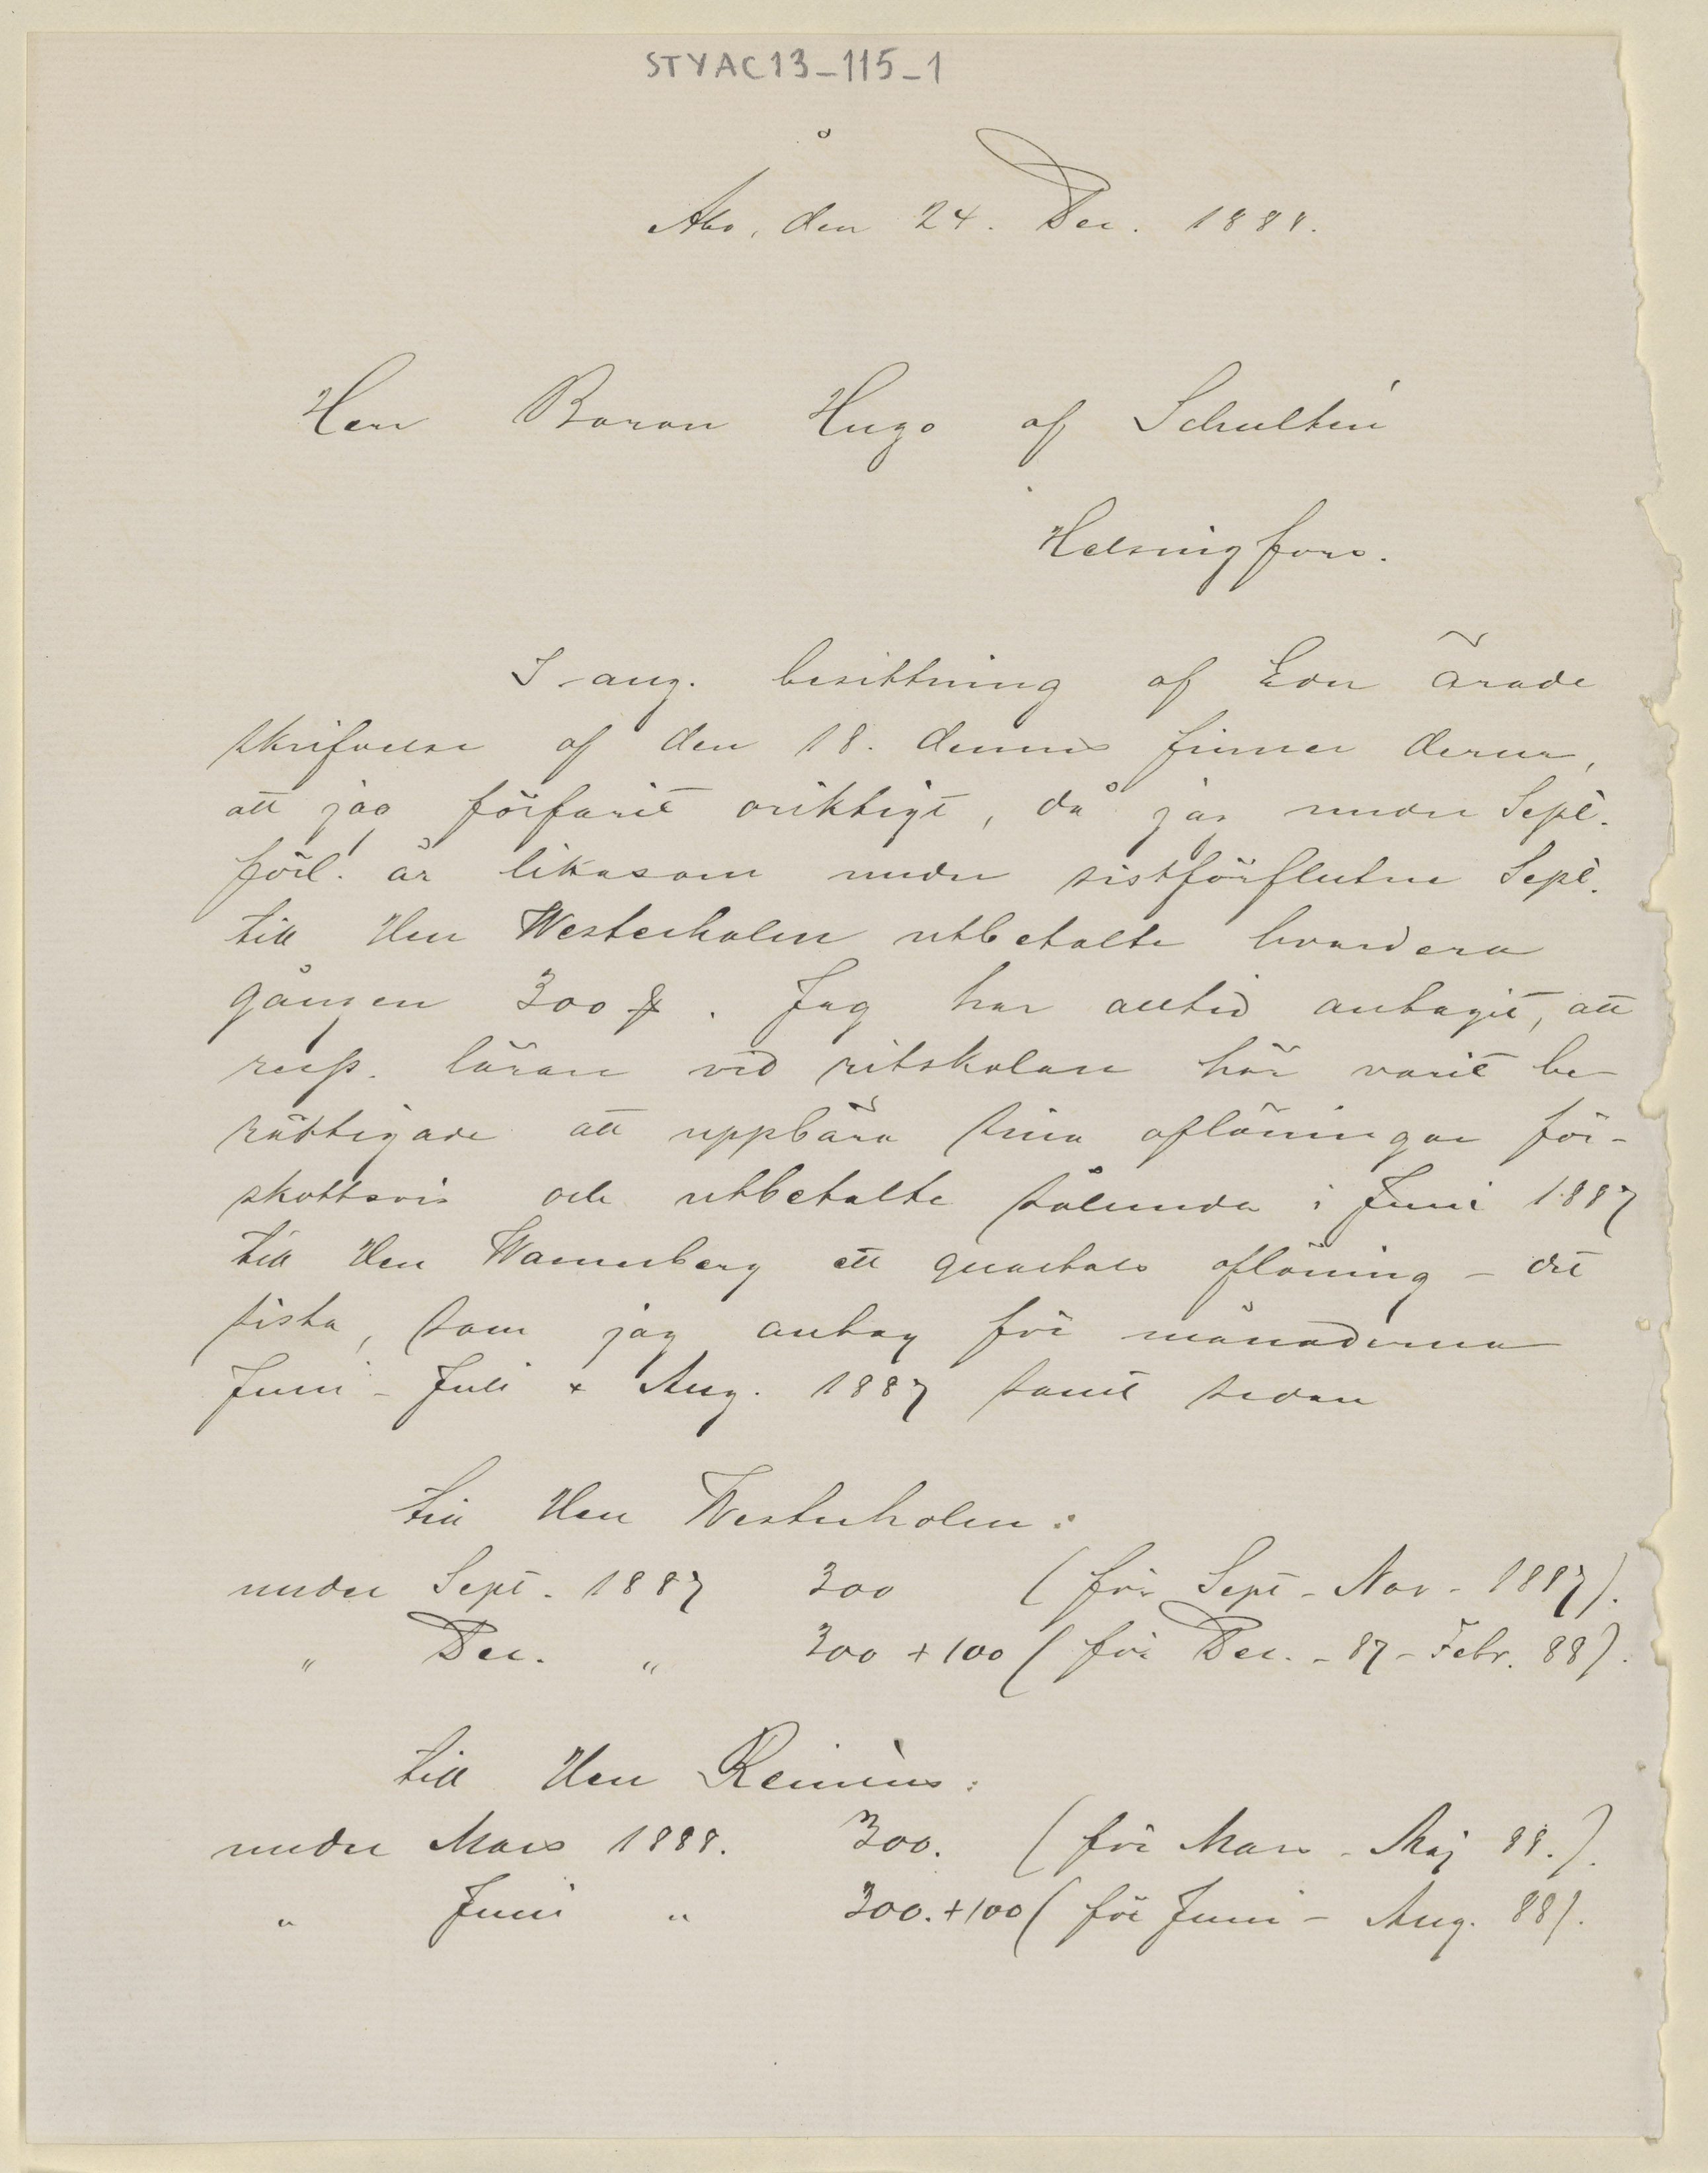 STYAC13_115_1
Åbo, den 24. Dec. 1888.
Herr Baron Hugo af Schultén
Helsingfors.
I ang. besittning af Eder ärade
skrifvelse af den 18. dennes finner derur,
att jag förfarit oriktigt, då jag under Sept.
förl. år likasom under sistförflutne Sept.
till Herr Westerholm utbetalte hvardera
gången 300 . Jag har alltid antagit, att
resp. lärare vid ritskolan här varit be-
rättigade att uppbära sina aflöningar för-
skottsvis och utbetalte sålunda i Juni 1887
till Herr Wannerberg ett quartals aflöning – det
sista, som jag antog för månaderna
Juni - Juli & Aug. 1887 samt sedan
till Herr Westerholm:
under Sept. 1887 300 (för Sept - Nov. 1887).
" Dec. " 300 + 100 (för Dec. - 87 - Febr. 88).
till Herr Reinius:
under Mars 1888. 300. (för Mars - Maj 88.).
" Juni " 300. + 100 (för Juni - Aug. 88).